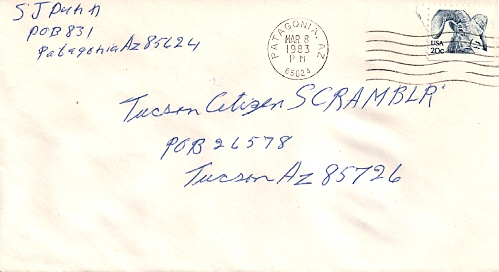 S J Dunn
POB 831
Patagonia Az 85624
PATAGONIA, AZ
MAR 8
1983
PM
85624
USA
20c
Tucson Citizen SCRAMBLR'
POB 26578
Tucson Az 85726